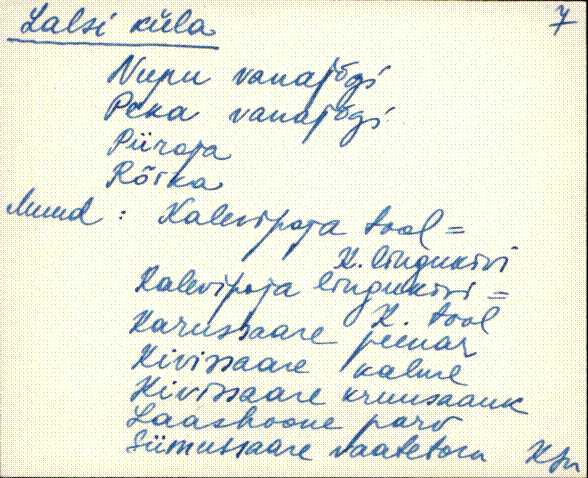 Lalsi küla 7
Nupu vanajõgi
Peka vanajõgi
Piiroja
Rõika
Muud : Kalevipoja tool =
K. lingukivi
Kalevipoja lingukivi =
K. tool
Karussaare peenar
Kivissaare kalme
Kivissaare kruusaauk
Laashoone parv
Siimussaare vaatetorn